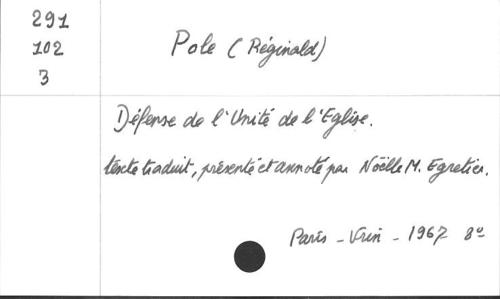 291
102
3
Pole (Réginald)
Défense de l'Unité de l'Eglise.
texte traduit, présenté et annoté par Noëlle M. Egretier.
Paris - Vrin - 1967 8º